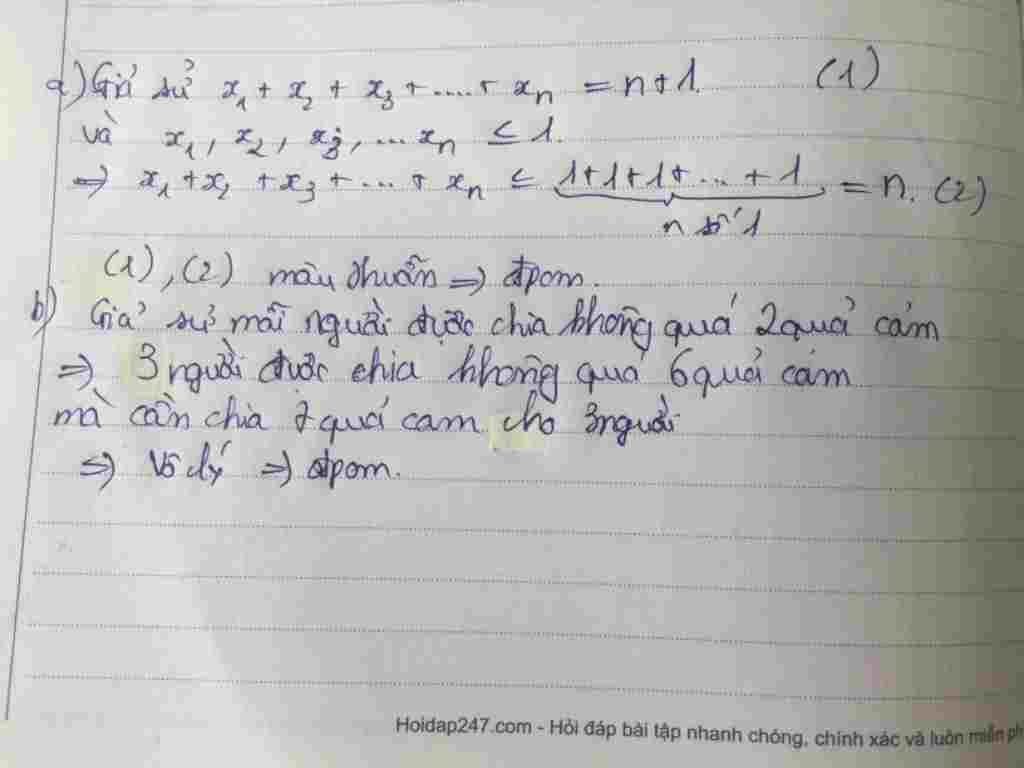 a) Giả sử x₁ + x₂ + x₃ + ..... + xₙ = n + 1. (1)
và x₁, x₂, x₃, ... xₙ ≤ 1.
=> x₁ + x₂ + x₃ + ... + xₙ ≤ 1+1+1+ ... + 1 = n. (2)
n số 1
(1), (2) mâu thuẫn => đpcm.
b) Giả sử mỗi người được chia không quá 2 quả cam
=> 3 người được chia không quá 6 quả cam
mà cần chia 7 quả cam cho 3 người
=> Vô lý => đpcm.
Hoidap247.com - Hỏi đáp bài tập nhanh chóng, chính xác và luôn miễn ph